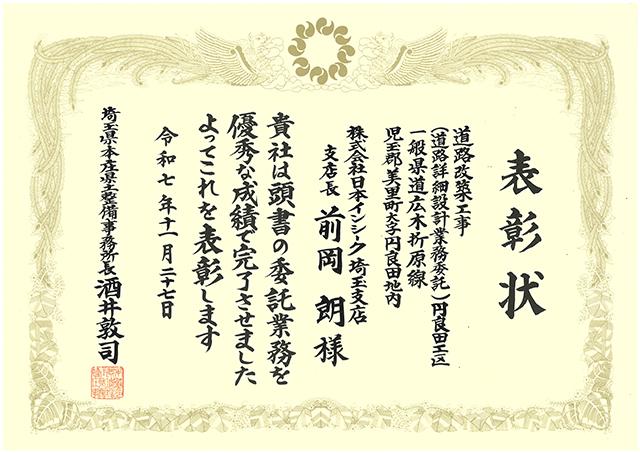 表彰状
道路改築工事
(道路詳細設計業務委託)円良田工区
一般県道広木折原線
児玉郡美里町大字円良田地内
株式会社日本インシーク埼玉支店
支店長 前岡 朗 様
貴社は頭書の委託業務を
優秀な成績で完了させました
よってこれを表彰します
令和七年十一月二十七日
埼玉県本庄県土整備事務所長 酒井敦司